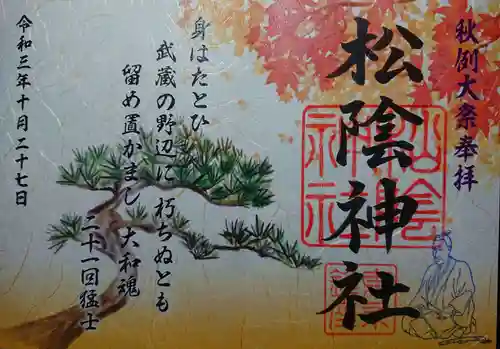 秋例大祭奉拝
松陰神社
身はたとひ
武蔵の野辺に朽ちぬとも
留め置かまし大和魂
二十一回猛士
令和三年十月二十七日
松陰神社